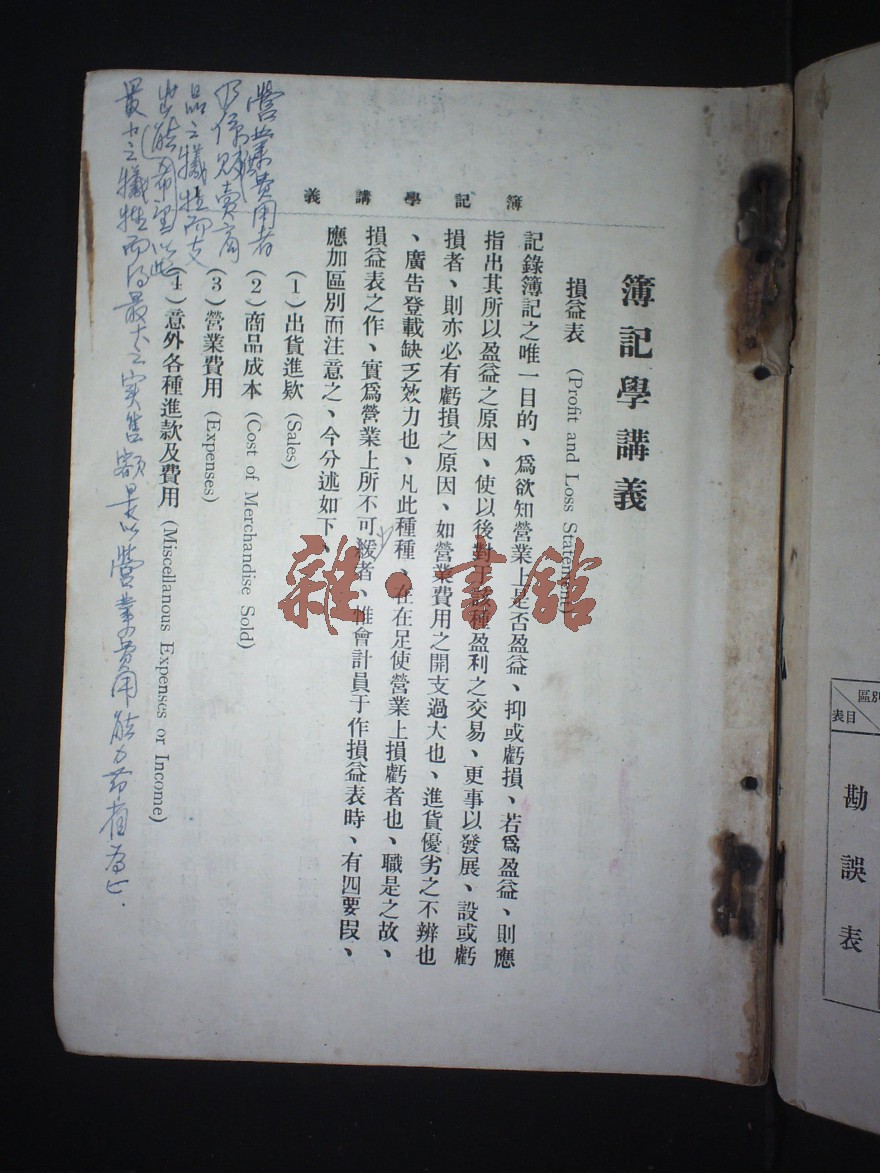 簿記學講義
簿記學講義
損益表 (Profit and Loss Statement)
記錄簿記之唯一目的、爲欲知營業上是否盈益、抑或虧損、若爲盈益、則應
指出其所以盈益之原因、使以後對于該種盈利之交易、更事以發展、設或虧
損者、則亦必有虧損之原因、如營業費用之開支過大也、進貨優劣之不辨也
、廣告登載缺乏效力也、凡此種種、在在足使營業上損虧者也、職是之故、
損益表之作、實爲營業上所不可緩者、惟會計員于作損益表時、有四要段、
應加區別而注意之、今分述如下、
(1) 出貨進欵 (Sales)
(2) 商品成本 (Cost of Merchandise Sold)
(3) 營業費用 (Expenses)
(4) 意外各種進款及費用 (Miscellanous Expenses or Income)
營業費用者
乃係販賣商
品之犧牲而支
出能力希望以此
最少之犧牲而得最大之実售額是以營業費用能力節省為上.
雜·書館
區別
表目
勘誤表